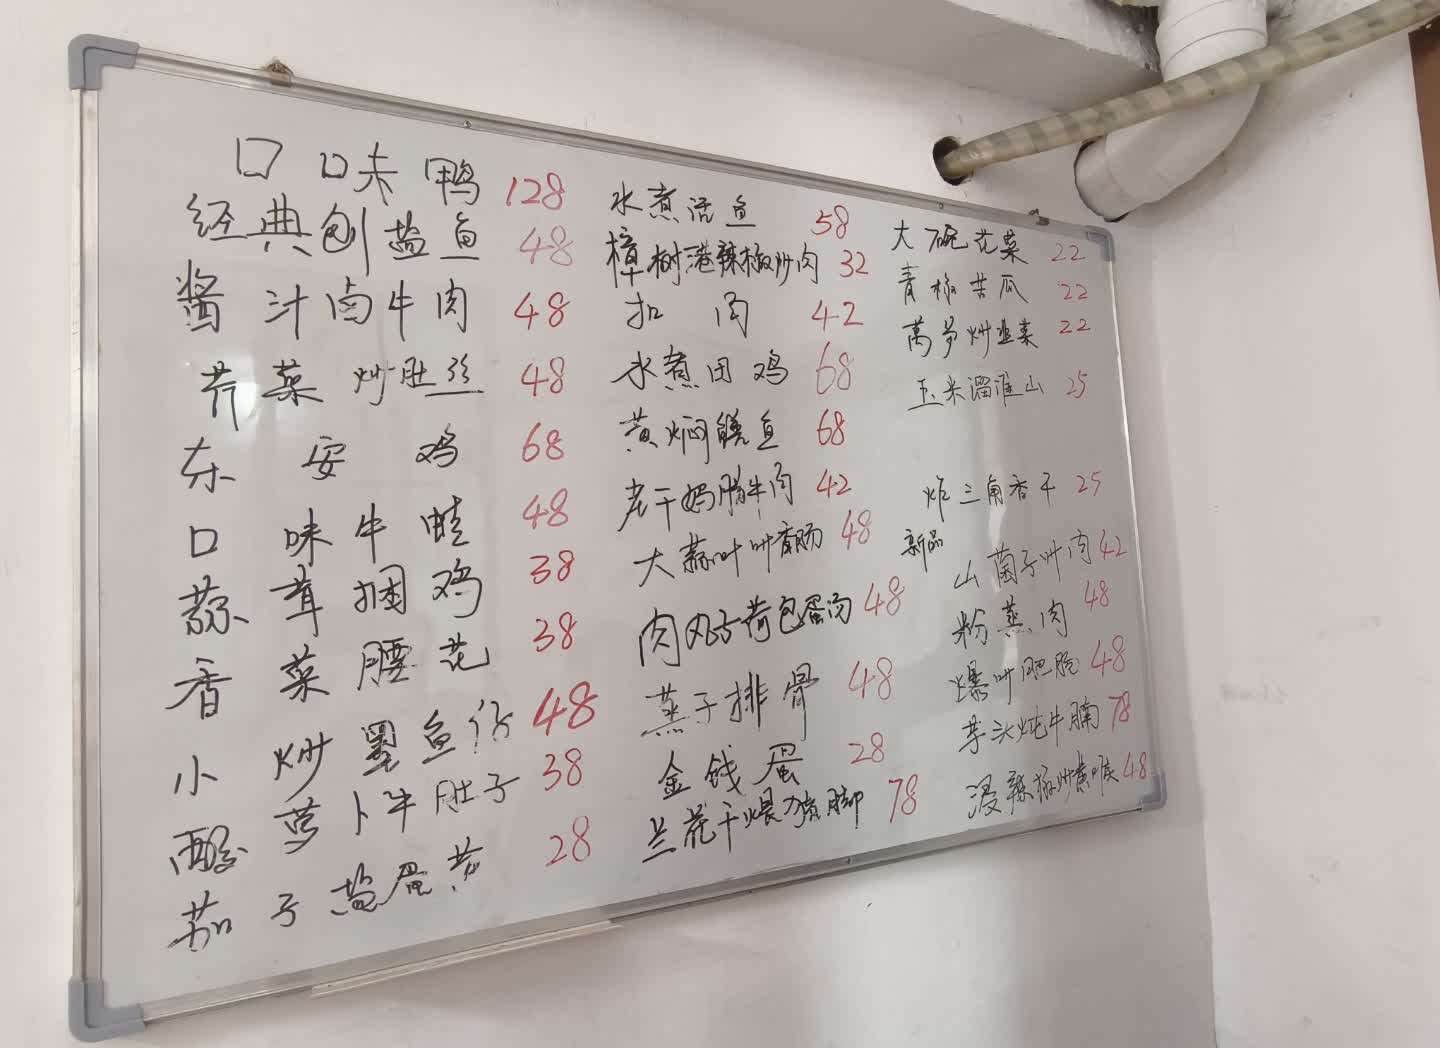 口口味鸭 128
经典刨盐鱼 48
酱汁卤牛肉 48
芥菜炒肚丝 48
东安鸡 68
口味牛蛙 48
蒜茸捆鸡 38
香菜腰花 38
小炒墨鱼仔 48
酸萝卜牛肚子 38
茄子盐蛋黄 28
水煮活鱼 58
樟树港辣椒炒肉 32
扣肉 42
水煮田鸡 68
黄焖鳝鱼 68
老干妈腊牛肉 42
大蒜叶炒香肠 48
肉丸子荷包蛋汤 48
蒸子排骨 48
金钱蛋 28
兰花干煨猪脚 78
大碗花菜 22
青椒苦瓜 22
萵笋炒韭菜 22
玉米溜淮山 25
炸三角香干 25
新品
山菌子炒肉 42
粉蒸肉 48
爆炒肥肠 48
芋头炖牛腩 78
浸辣椒炒黄喉 48